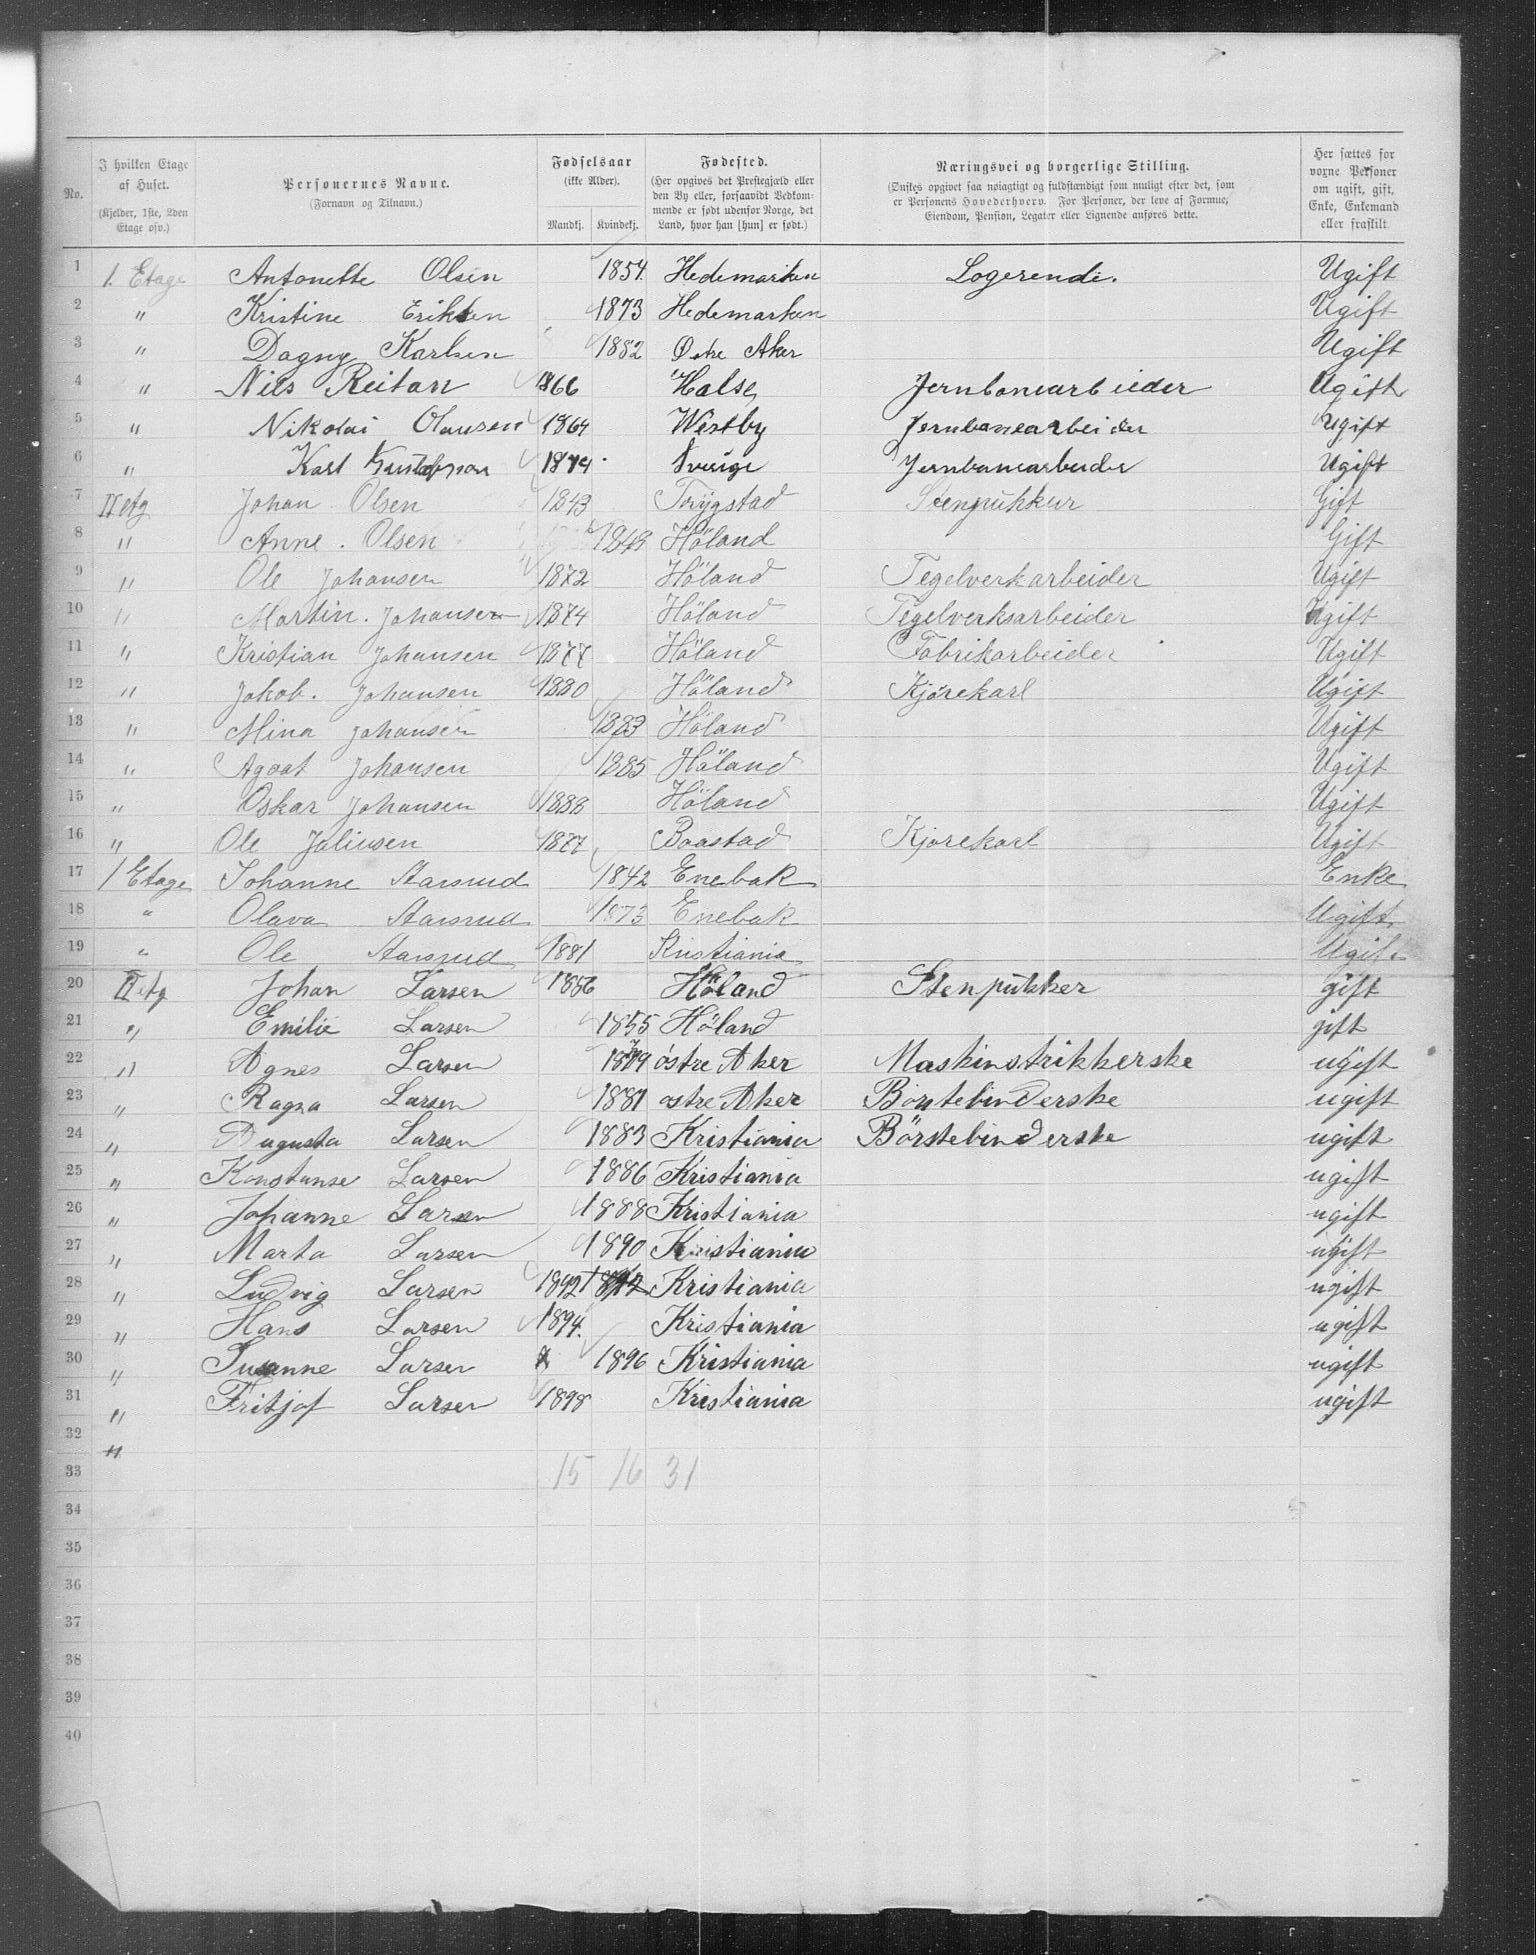 No.
I hvilken Etage af Huset. (Kjelder, 1ste, 2den Etage osv.)
Personernes Navne. (Fornavn og Tilnavn.)
Fødselsaar (ikke Alder). Mandkj. Kvindekj.
Fødested. (Her opgives det Præstegjæld eller den By eller, forsaavidt Vedkommende er født udenfor Norge, det Land, hvor han [hun] er født.)
Næringsvei og borgerlige Stilling. (Ønskes opgivet saa nøiagtigt og fuldstændigt som muligt efter det, som er Personens Hovederhverv. For Personer, der leve af Formue, Eiendom, Pension, Legater eller Lignende anføres dette.
Her sættes for voxne Personer om ugift, gift, Enke, Enkemand eller fraskilt.
1 1. Etage Antonette Olsen 1854. Hedemarken Logerende. Ugift
2 " Kristine Eriksen 1873 Hedemarken Ugift
3 " Dagny Karlsen 1882 Østre Aker Ugift
4 " Nils Reitan 1866 Halse Jernbanearbeider Ugift
5 " Nikolai Olausen 1864 Westby Jernbanearbeider Ugift
6 " Karl Gustafson 1874 Sverige Jernbanearbeider Ugift
7 II etg Johan Olsen 1843 Trygstad Stenpukker Gift
8 " Anne. Olsen 1849 Höland Gift
9 " Ole Johansen 1872 Höland Tegelverkarbeider Ugift
10 " Martin. Johansen 1874 Höland Tegelverksarbeider Ugift
11 " Kristian Johansen 1877 Höland Fabrikarbeider Ugift
12 " Jakob. Johansen 1880 Höland Kjörekarl Ugift
13 " Mina Johansen 1883 Höland Ugift
14 " Agvat Johansen 1885 Höland Ugift
15 " Oskar Johansen 1888 Höland Ugift
16 " Ole Juliusen 1877 Baastad Kjörekarl Ugift
17 1 Etage Johanne Aarsrud 1842 Enebak Enke
18 " Olava Aarsrud 1873 Enebak Ugift
19 " Ole Aarsrud 1881 Kristiania Ugift
20 II etg Johan Larsen 1856 Höland Stenpukker gift
21 " Emilie Larsen 1855 Höland gift
22 " Agnes Larsen 1879 östre Aker Maskinstrikkerske ugift
23 " Ragna Larsen 1881 östre Aker Börstebinderske ugift
24 " Augusta Larsen 1883 Kristiania Börstebinderske ugift
25 " Konstanse Larsen 1886 Kristiania ugift
26 " Johanne Larsen 1888 Kristiania ugift
27 " Marta Larsen 1890 Kristiania ugift
28 " Ludvig Larsen 1892 Kristiania ugift
29 " Hans Larsen 1894. Kristiania ugift
30 " Susanne Larsen 1896 Kristiania ugift
31 " Fritjof Larsen 1898 Kristiania ugift
32 "
33 15 16 31
34
35
36
37
38
39
40